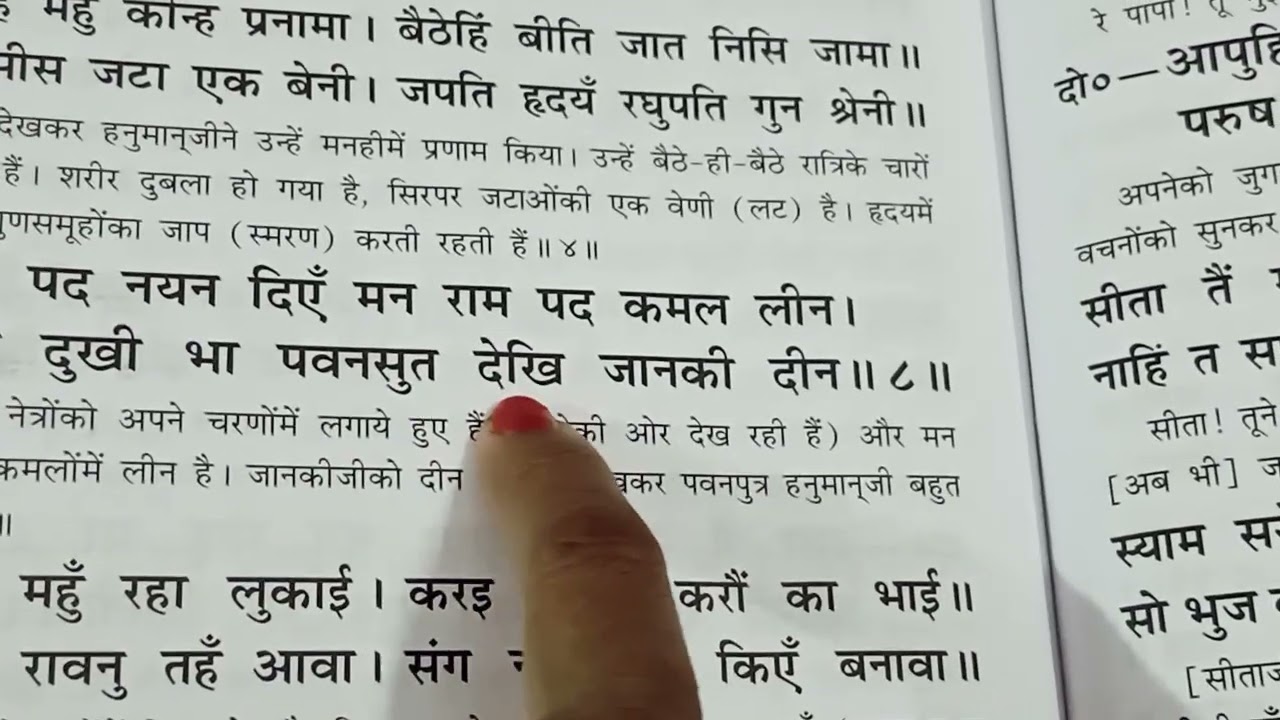 महुँ कीन्ह प्रनामा। बैठेहिं बीति जात निसि जामा॥
सीस जटा एक बेनी। जपति हृदयँ रघुपति गुन श्रेनी॥
देखकर हनुमान्‌जीने उन्हें मनहीमें प्रणाम किया। उन्हें बैठे-ही-बैठे रात्रिके चारों
हैं। शरीर दुबला हो गया है, सिरपर जटाओंकी एक वेणी (लट) है। हृदयमें
गुणसमूहोंका जाप (स्मरण) करती रहती हैं॥४॥
पद नयन दिएँ मन राम पद कमल लीन।
दुखी भा पवनसुत देखि जानकी दीन॥८॥
नेत्रोंको अपने चरणोंमें लगाये हुए हैं की ओर देख रही हैं) और मन
कमलोंमें लीन है। जानकीजीको दीन पवनपुत्र हनुमान्‌जी बहुत
॥
महुँ रहा लुकाई। करइ करौं का भाई॥
रावनु तहँ आवा। संग किएँ बनावा॥
रे पापी! तू
दो०—आपुहि
परुष
अपनेको जुग
वचनोंको सुनकर
सीता तैं
नाहिं त
सीता! तूने
[अब भी]
स्याम
सो भुज
[सीताज